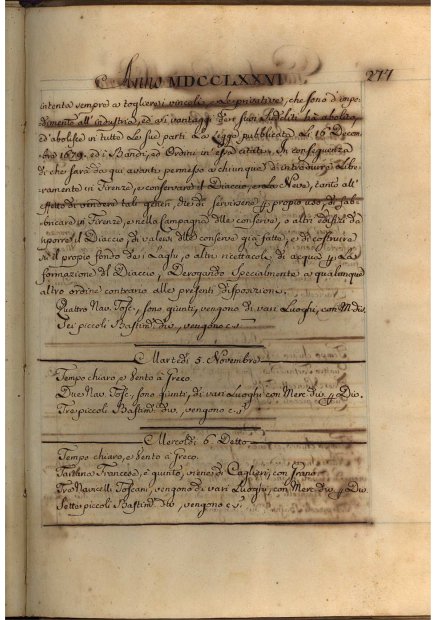 Anno MDCCLXXXVI 277
intenta sempre a togliere i vincoli, e le privative, che sono d'impe-
dimento all'industria, ed ai vantaggi dei suoi Sudditi ha abolito,
ed abolisce in tutte le sue parti la Legge pubblicata li 16 Decem-
bre 1679. ed i Bandi, ed Ordini in essa citati. In conseguenza
di che sarà da qui avanti permesso a chiunque di introdurre libe-
ramente in Firenze, e conservare il Diaccio, e la Neve, tanto all'
effetto di vendere tali generi, che di servirsene p. proprio uso, di fab-
bricare in Firenze, e nella Campagna delle conserve, o altri edifizi da
riporre il Diaccio, di valersi delle conserve già fatte, e di costruire
il proprio fondo dei Laghi, o altri ricettacoli di acqua p. la
formazione del Diaccio, Derogando Specialmente a qualunque
altro ordine contrario alle presenti disposizioni.
Quattro Nav. Tosc., sono giunti, vengono di vari Luoghi, con M. div.
Sei piccoli Bastim. div., vengono c.s.
Martedì 5. Novembre
Tempo chiaro, e Vento a Greco.
Due Nav. Tosc., sono giunti, di vari Luoghi con Merc. div. p. Div.
Tre piccoli Bastim. div., vengono c.s.
Mercoldì 6. Detto
Tempo chiaro, e Vento a Greco.
Tartana Francese, è giunto, viene di Caglieri, con Grano.
Tre Navicelli Toscani, vengono di vari Luoghi, con Merc. div. p. Div.
Sette piccoli Bastim. div., vengono c.s.